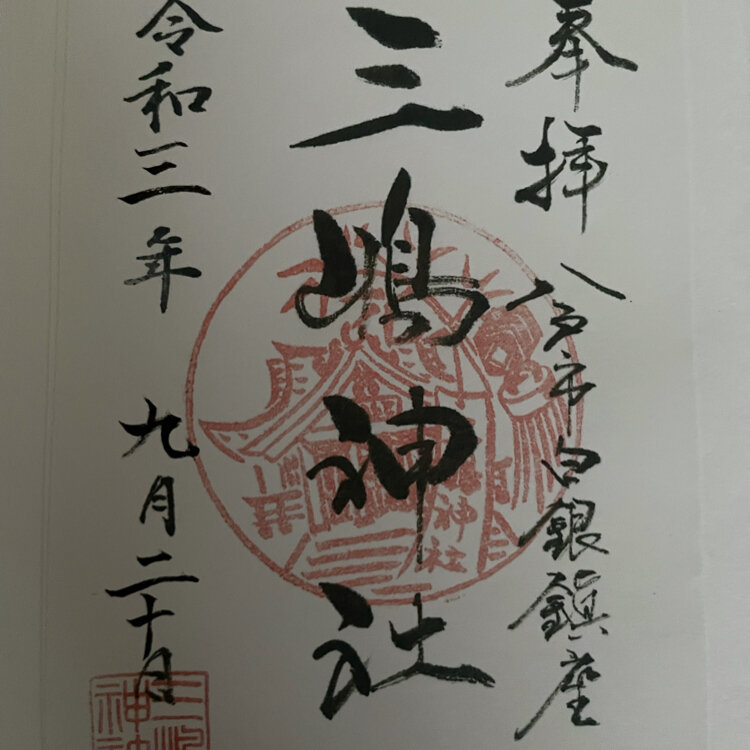 奉拝 八戸市白銀鎮座
三嶋神社
令和三年 九月二十日
神社
三嶋
神社